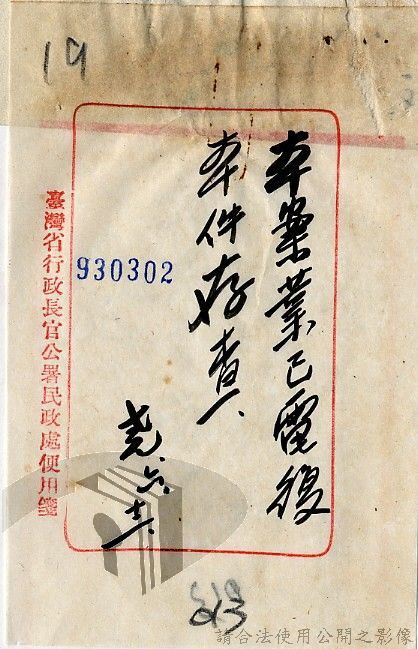 19
本案業已電復
本件存查
堯 六、十二、
930302
臺灣省行政長官公署民政處便用箋
013
請合法使用公開之影像